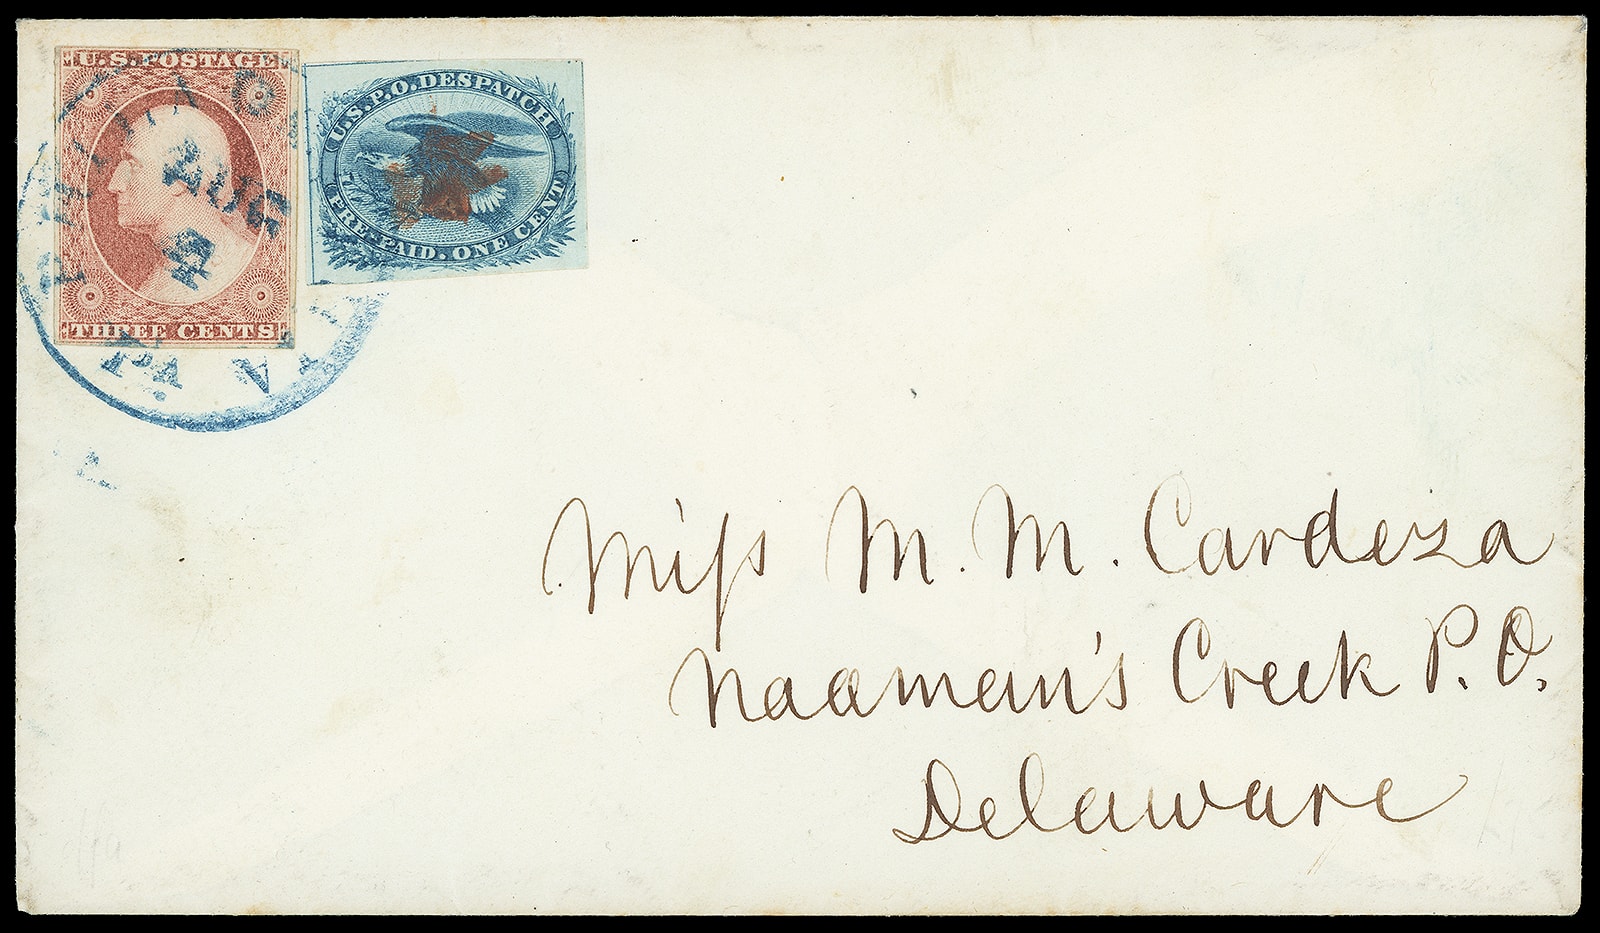 U.S. POSTAGE
THREE CENTS
U.S.P.O. DESPATCH
PRE-PAID. ONE CENT
PHILADA
AUG
Pa.
Miſs M. M. Cardeza
Naaman's Creek P.O.
Delaware